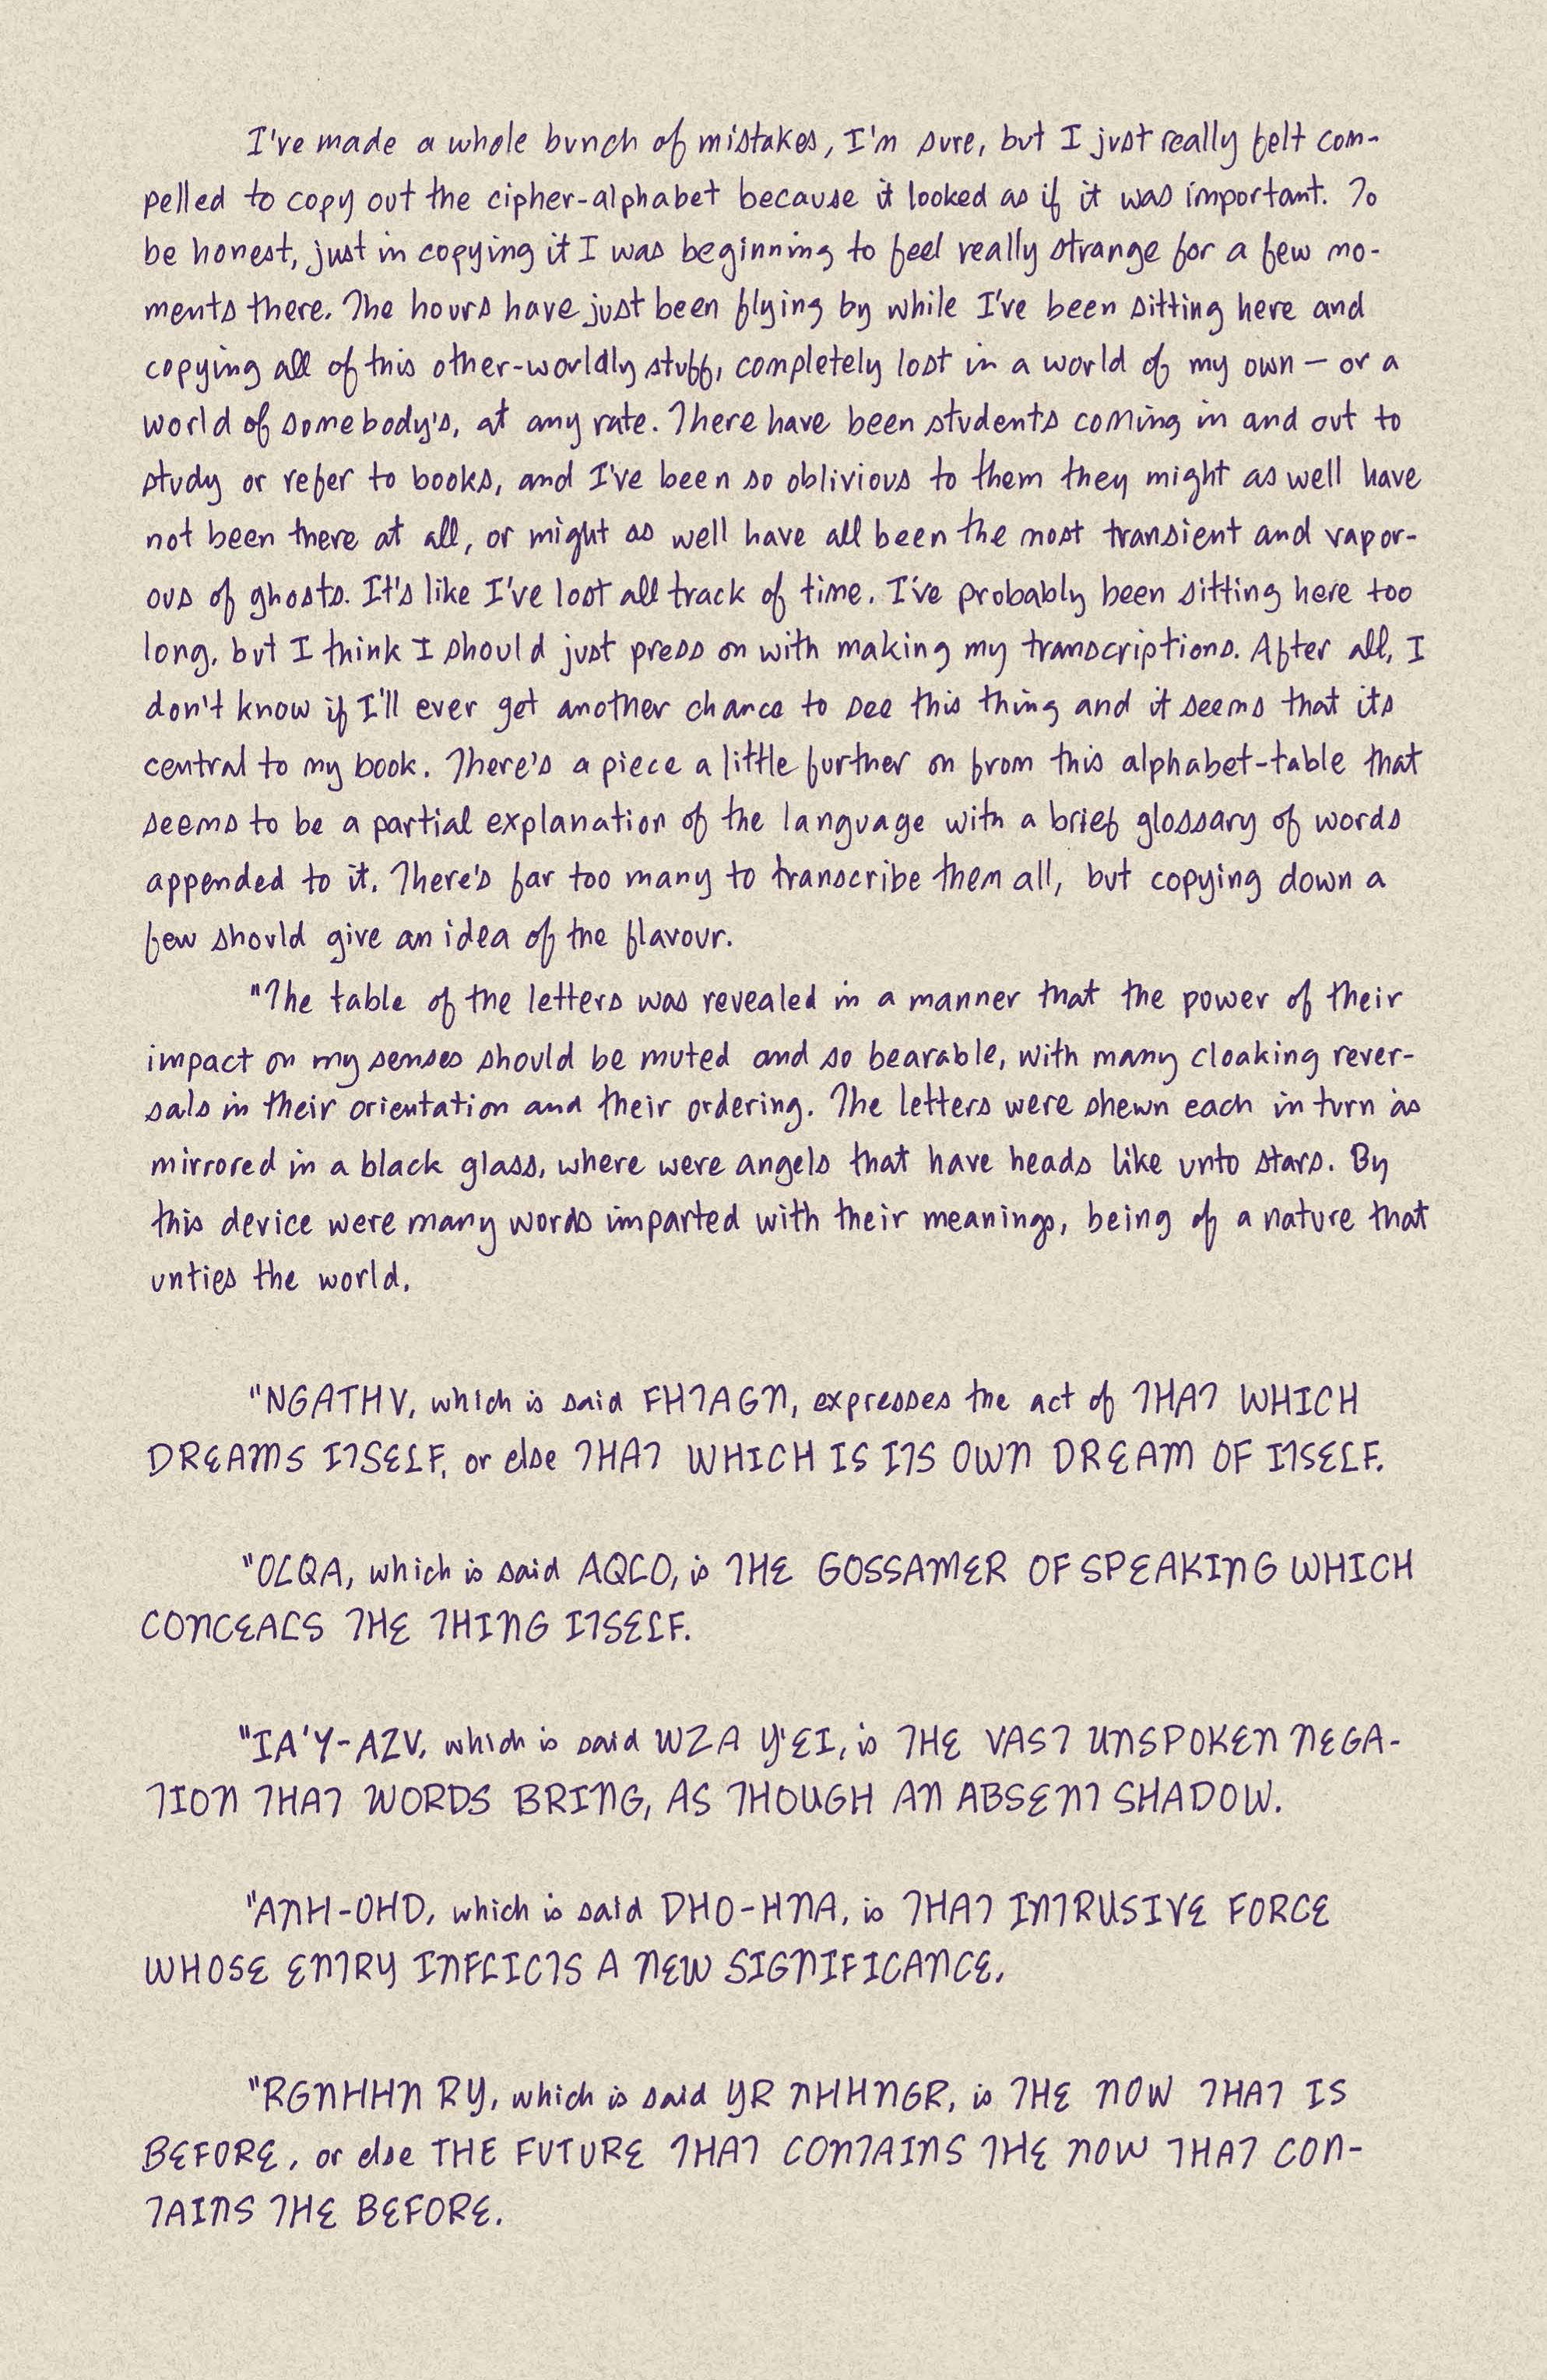 I've made a whole bunch of mistakes, I'm sure, but I just really felt com-
pelled to copy out the cipher-alphabet because it looked as if it was important. To
be honest, just in copying it I was beginning to feel really strange for a few mo-
ments there. The hours have just been flying by while I've been sitting here and
copying all of this other-worldly stuff, completely lost in a world of my own — or a
world of somebody's, at any rate. There have been students coming in and out to
study or refer to books, and I've been so oblivious to them they might as well have
not been there at all, or might as well have all been the most transient and vapor-
ous of ghosts. It's like I've lost all track of time. I've probably been sitting here too
long, but I think I should just press on with making my transcriptions. After all, I
don't know if I'll ever get another chance to see this thing and it seems that its
central to my book. There's a piece a little further on from this alphabet-table that
seems to be a partial explanation of the language with a brief glossary of words
appended to it. There's far too many to transcribe them all, but copying down a
few should give an idea of the flavour.
"The table of the letters was revealed in a manner that the power of their
impact on my senses should be muted and so bearable, with many cloaking rever-
sals in their orientation and their ordering. The letters were shewn each in turn as
mirrored in a black glass, where were angels that have heads like unto stars. By
this device were many words imparted with their meanings, being of a nature that
unties the world.
"NGATHV, which is said FHTAGN, expresses the act of THAT WHICH
DREAMS ITSELF, or else THAT WHICH IS ITS OWN DREAM OF ITSELF.
"OLQA, which is said AQLO, is THE GOSSAMER OF SPEAKING WHICH
CONCEALS THE THING ITSELF.
"IA'Y-AZV, which is said WZA Y'EI, is THE VAST UNSPOKEN NEGA-
TION THAT WORDS BRING, AS THOUGH AN ABSENT SHADOW.
"ANH-OHD, which is said DHO-HNA, is THAT INTRUSIVE FORCE
WHOSE ENTRY INFLICTS A NEW SIGNIFICANCE.
"RGNHHN RY, which is said YR NHHNGR, is THE NOW THAT IS
BEFORE, or else THE FUTURE THAT CONTAINS THE NOW THAT CON-
TAINS THE BEFORE.